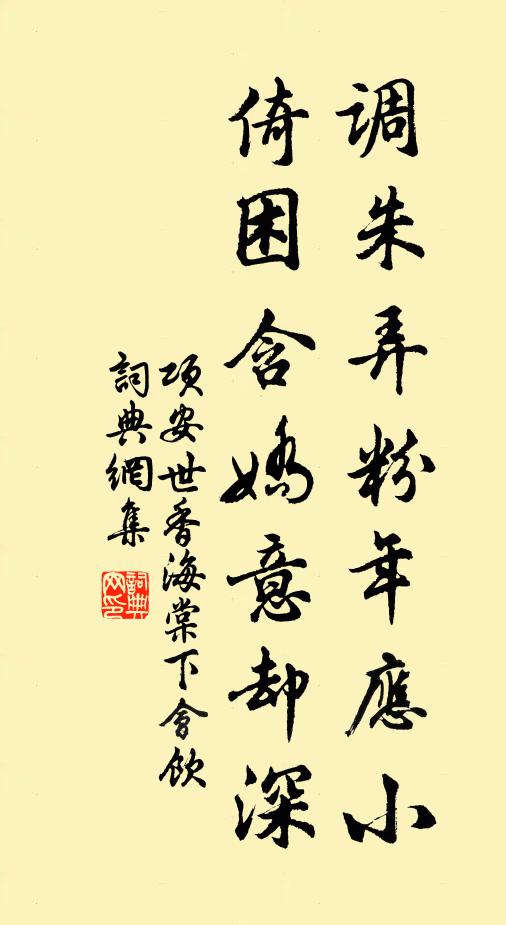 调朱弄粉年應小
倚困含嬌意却深
项安世香海棠下會飲
詞典網集
詞典網印